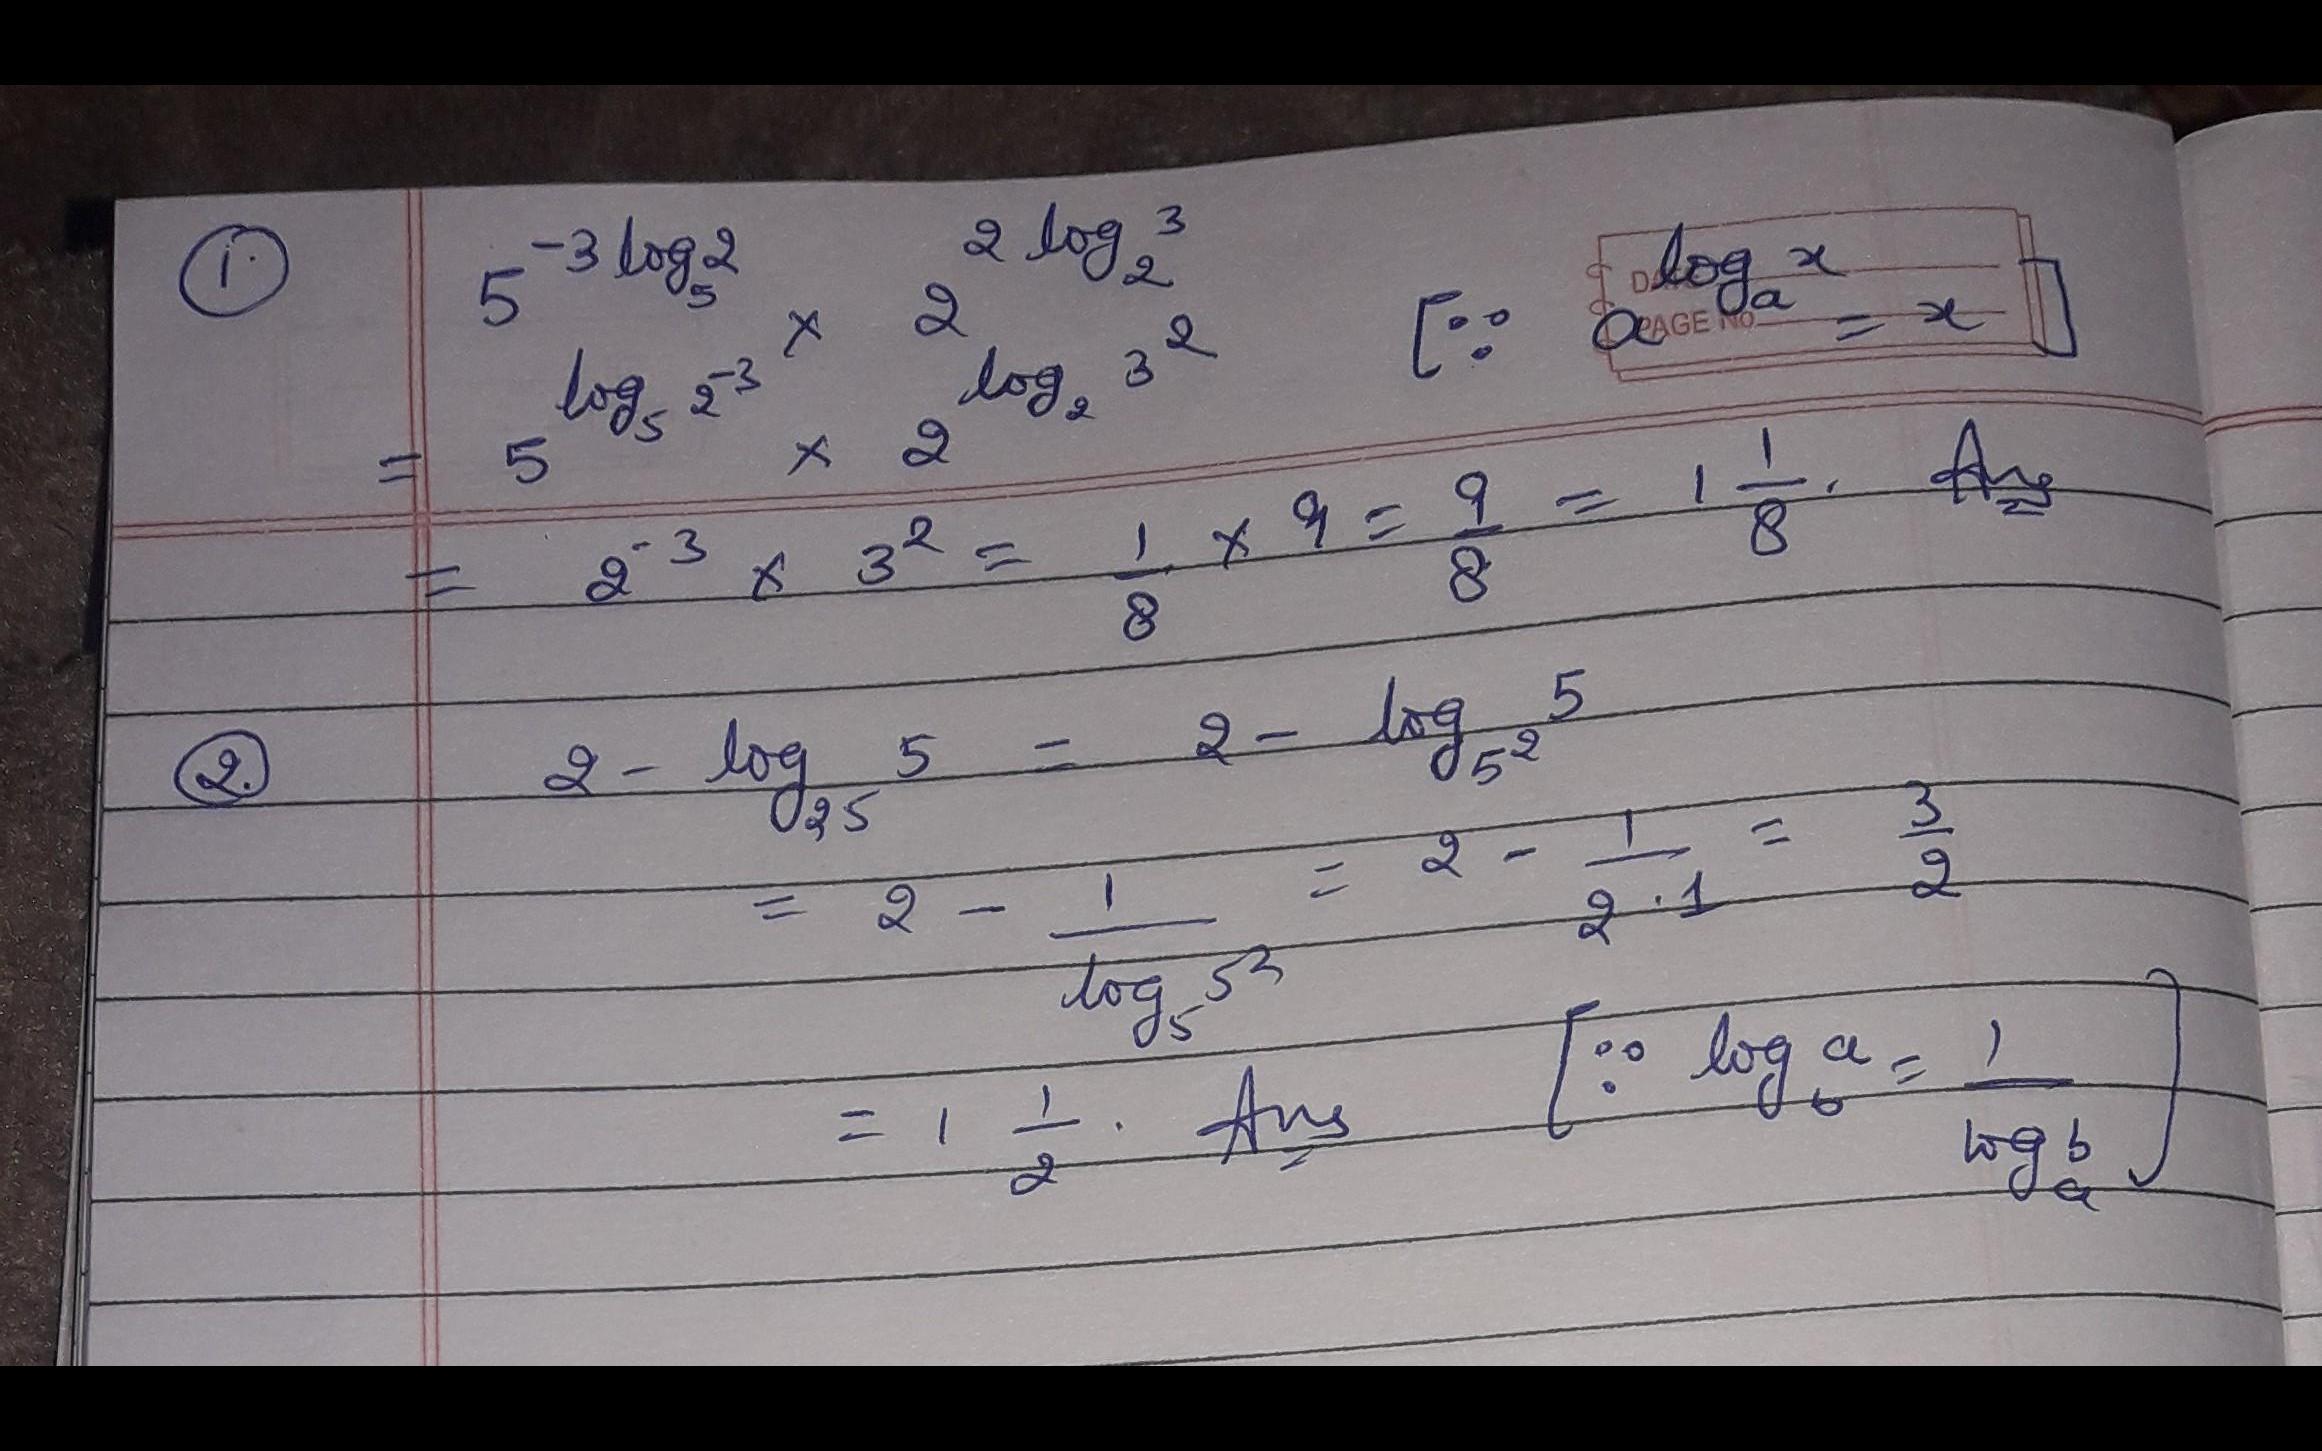 ① 5^{-3 log_5 2} × 2^{2 log_2 3} [∵ a^{log_a x} = x]
= 5^{log_5 2^{-3}} × 2^{log_2 3^2}
= 2^{-3} × 3^2 = 1/8 × 9 = 9/8 = 1 1/8. Ans
② 2 - log_{25} 5 = 2 - log_{5^2} 5
= 2 - 1/(log_5 5^2) = 2 - 1/(2·1) = 3/2
= 1 1/2. Ans [∵ log_b a = 1/(log_a b)]
PAGE No